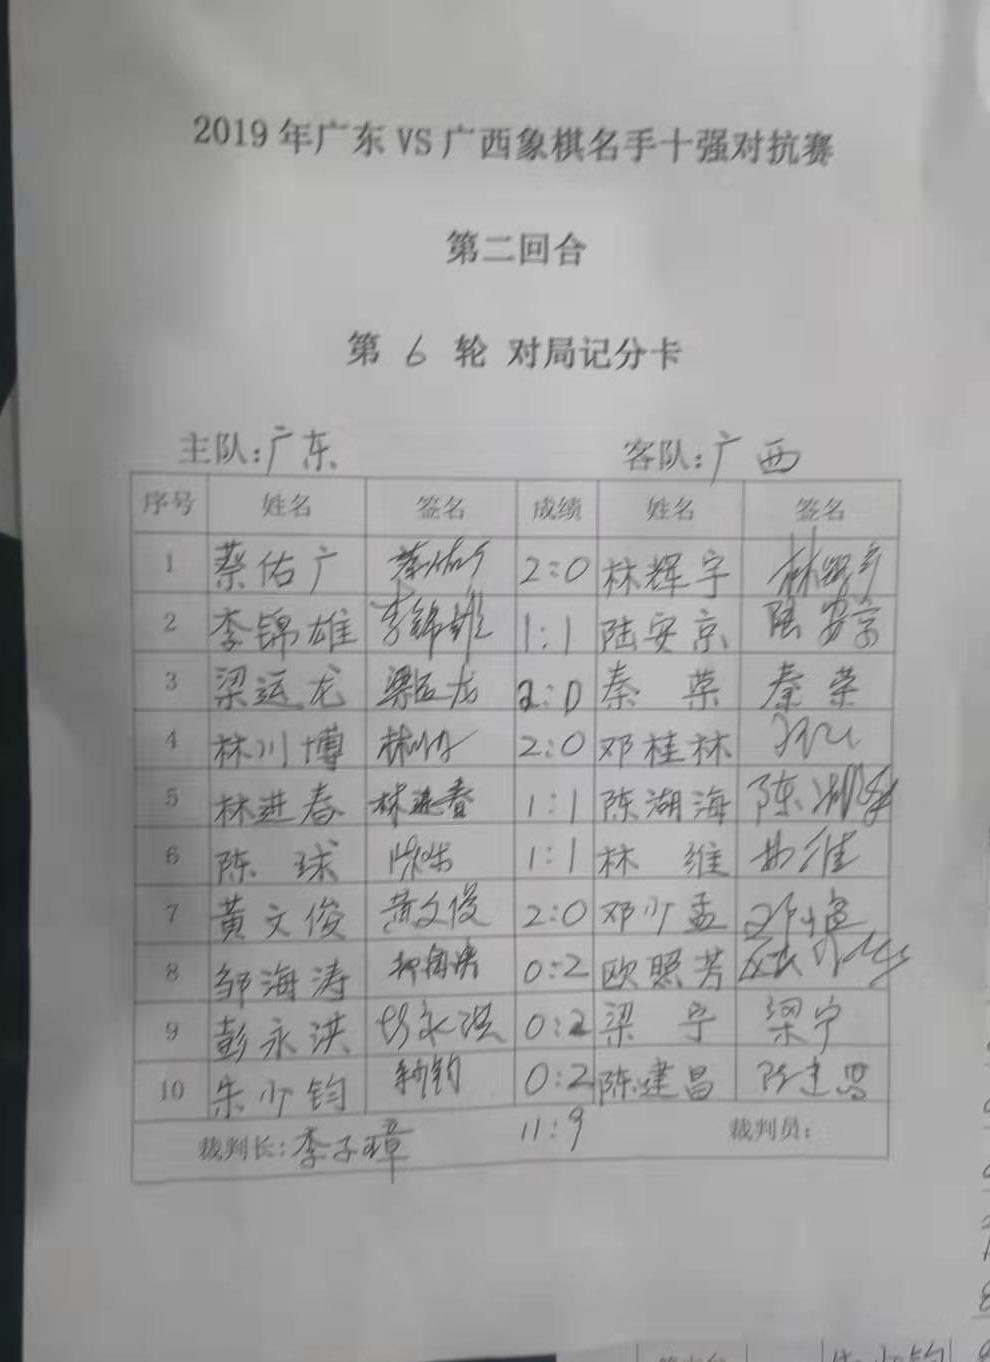 2019年广东VS广西象棋名手十强对抗赛
第二回合
第 6 轮 对局记分卡
主队:广东 客队:广西
序号 姓名 签名 成绩 姓名 签名
1 蔡佑广 蔡佑广 2:0 林辉宇 林辉宇
2 李锦雄 李锦雄 1:1 陆安京 陆安京
3 梁运龙 梁运龙 2:0 秦 荣 秦 荣
4 林川博 2:0 邓桂林
5 林进春 林进春 1:1 陈湖海 陈湖海
6 陈 球 1:1 林 维 林维
7 黄文俊 黄文俊 2:0 邓少孟
8 邹海涛 邹海涛 0:2 欧照芳
9 彭永洪 彭永洪 0:2 梁 宁 梁宁
10 朱少钧 朱少钧 0:2 陈建昌 陈建昌
裁判长:李子璋 11:9 裁判员: